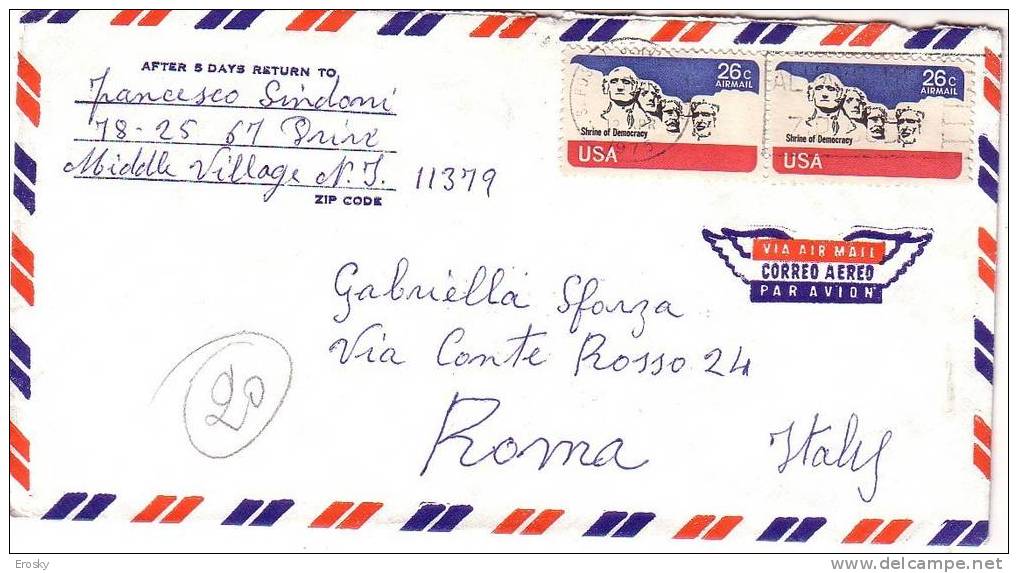 AFTER 5 DAYS RETURN TO
Francesco Sindoni
78-25 67 Drive
Middle Village N.J. 11379
ZIP CODE
26c
AIRMAIL
Shrine of Democracy
USA
26c
AIRMAIL
Shrine of Democracy
USA
VIA AIR MAIL
CORREO AEREO
PAR AVION
Gabriella Sforza
Via Conte Rosso 24
Roma Italy
20
Erosky
delcampe.net